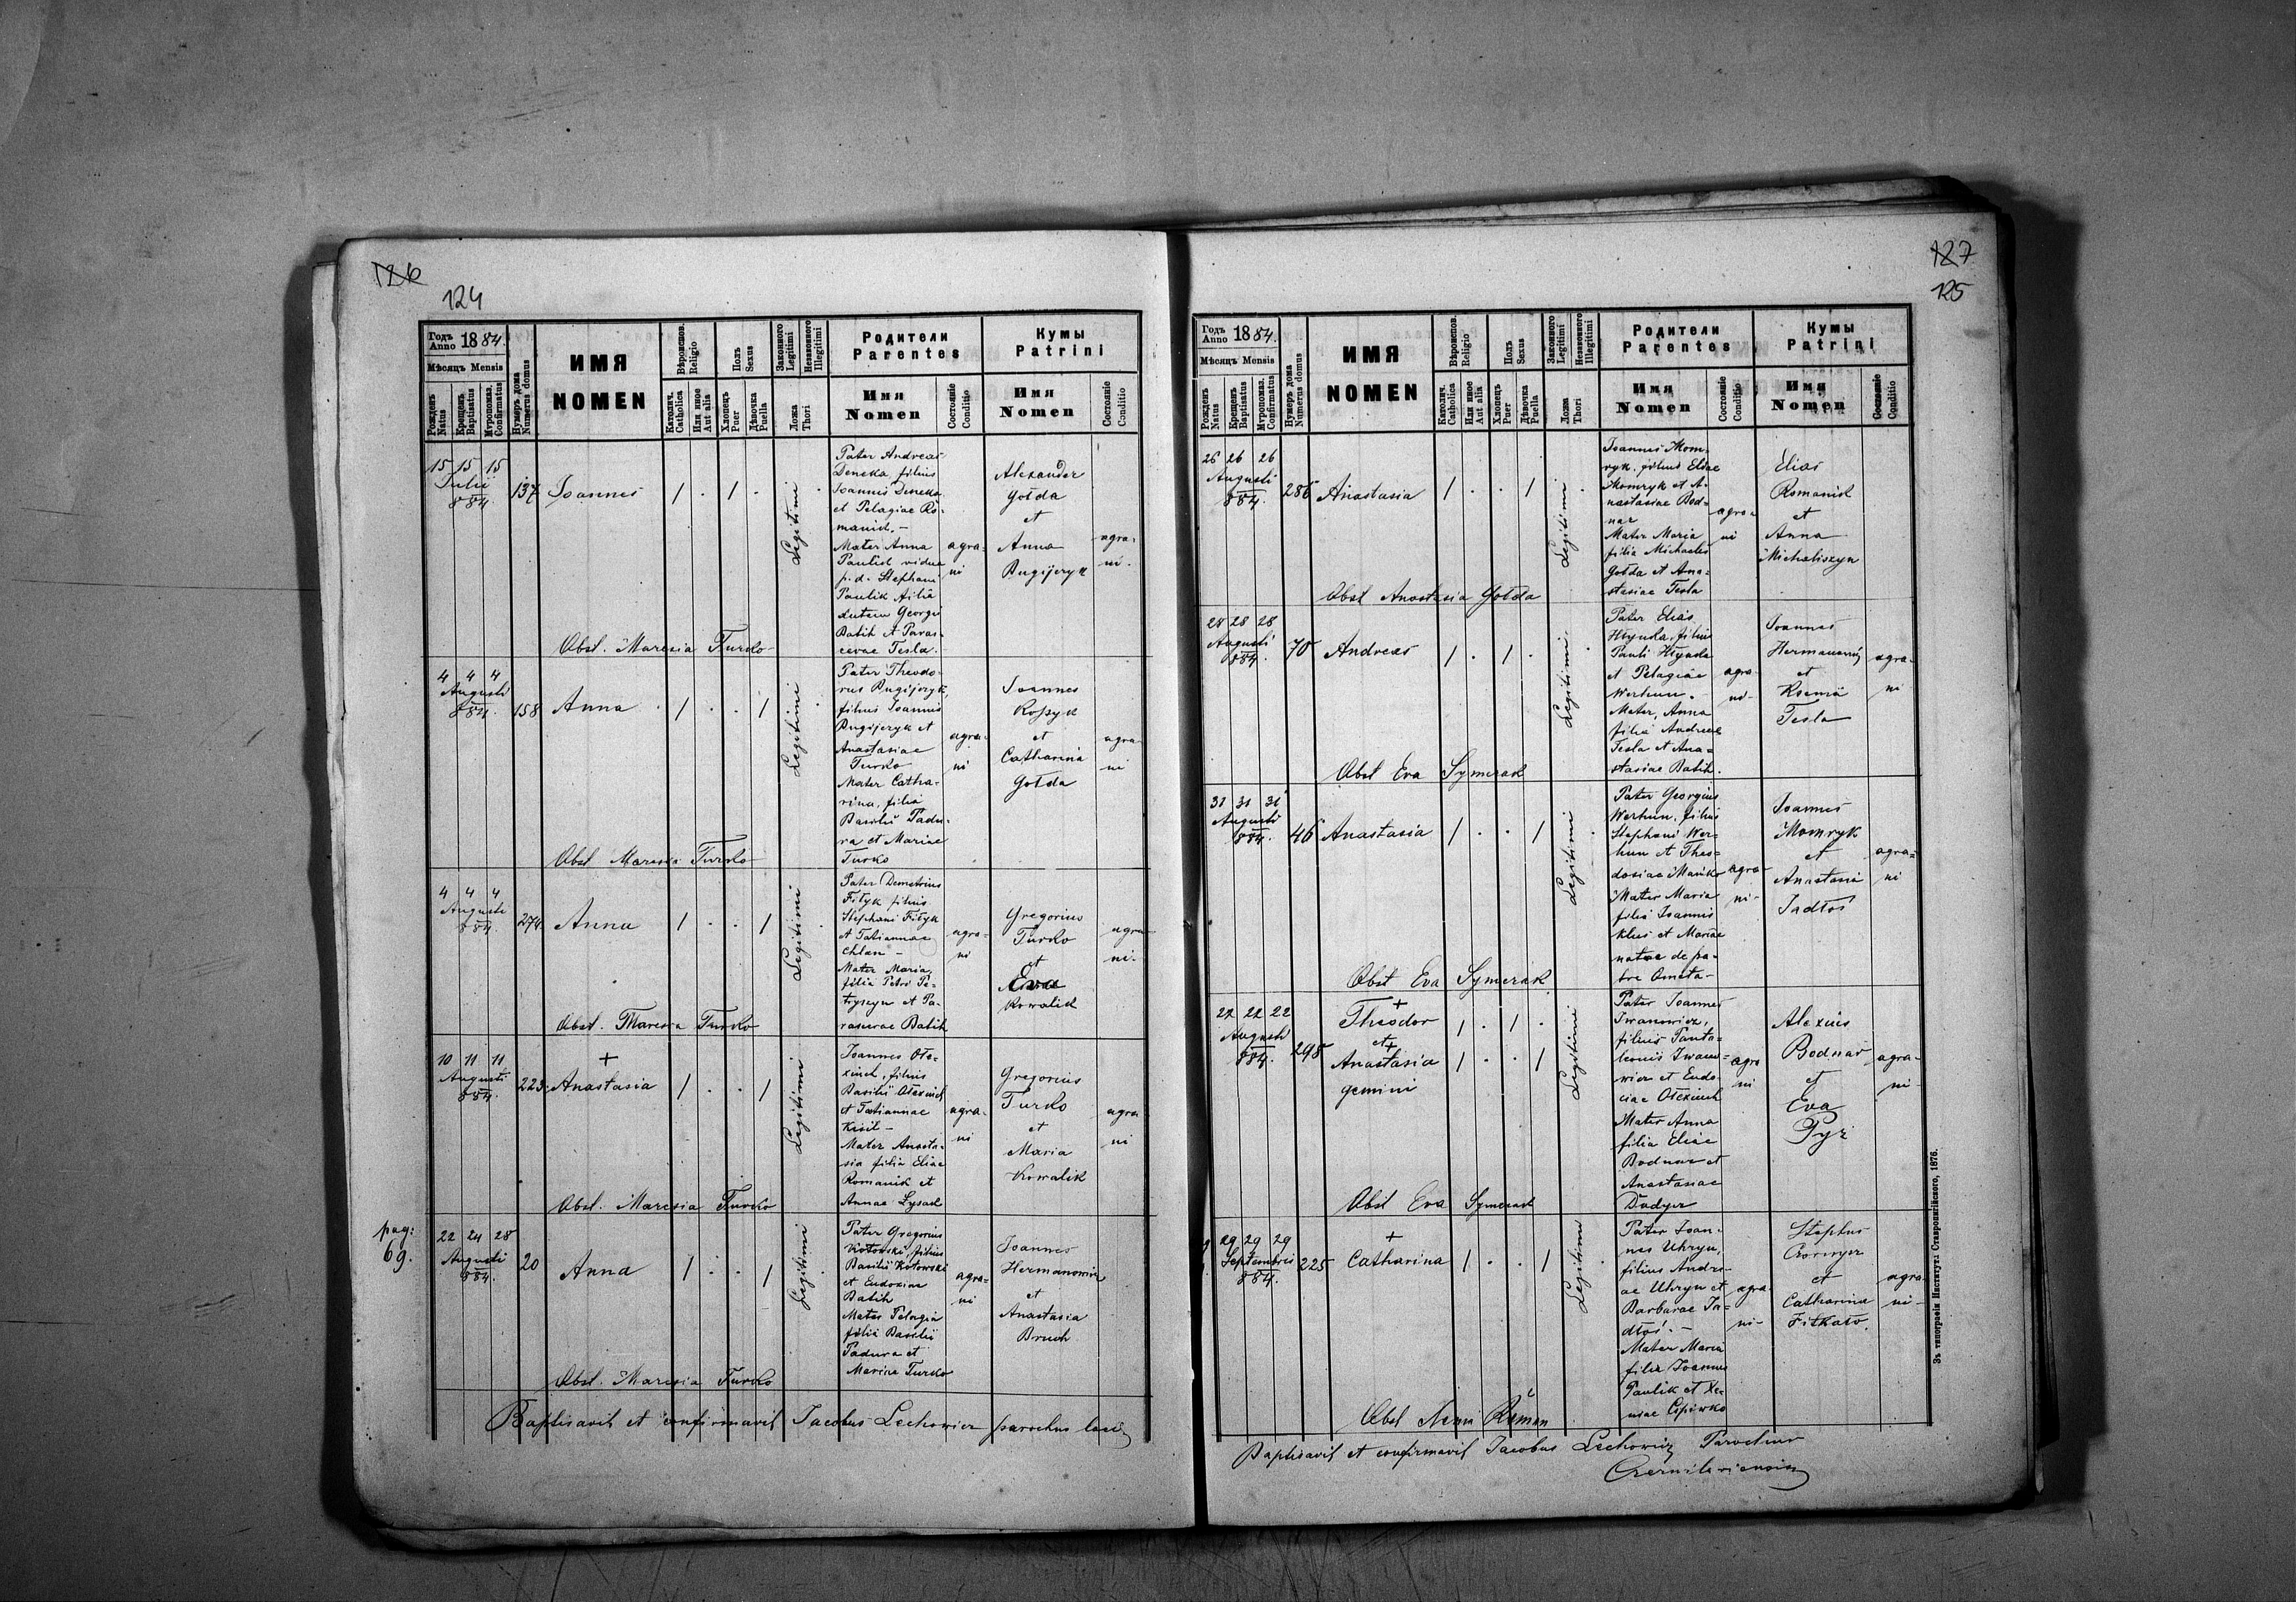 126
124
Годъ Anno 1884.
ИМЯ
NOMEN
Вѣроиспов. Religio
Полъ Sexus
Законного Legitimi
Незаконного Illegitimi
Родители
Parentes
Кумы
Patrini
Мѣсяцъ Mensis
Рожденъ Natus
Крещенъ Baptisatus
Мѵропомаз. Confirmatus
Нумеръ дома Numerus domus
Католич. Catholica
Или иное Aut alia
Хлопець Puer
Дѣвочка Puella
Ложа Thori
Имя
Nomen
Состояніе Conditio
Имя
Nomen
Состояніе Conditio
15 15 15
Julii
884
137
Joannes
1 . 1 .
Legitimi
Pater Andreas
Deneka, filius
Joannis Deneka
et Pelagiae Ro-
manich. -
Mater Anna
vidua
p. d. Stephani
Paulik filia
autem Georgii
Batih et Paras-
cevae Tesla.
agra-
ni
Alexander
Gołda
et
Anna
Bugijczyk
agra-
ni.
Obst. Maresia Turko
4 4 4
Augusti
884.
158
Anna
1 . . 1
Legitimi
Pater Theodo-
rus Bugijczyk,
filius Joannis
Bugijczyk et
Anastasiae
Turko
Mater Catha-
rina, filia
Basilii Padu-
ra et Mariae
Turko
agra-
ni
Joannes
et
Catharina
Gołda
agra
ni
Obst Maresia Turko
4 4 4
Augusti
884.
274.
Anna
1 . . 1
Legitimi
Pater Demetrius
Fityk filius
Stephani Fityk
et Tatiannae
Chlan -
Mater Maria,
filia Petri Pe-
tryszyn et Pa-
rascevae Batih
agra-
ni
Gregorius
Turko
et
Eva
Kowalik
agra-
ni.
Obst. Maresia Turko
10 11 11
Augusti
884.
223.
+
Anastasia
1 . . 1
Legitimi
Joannes Ołe-
xiuch, filius
Basilii Ołexiuch
et Tatiannae
Kisil -
Mater Anasta-
sia filia Eliae
Romanich et
Annae Lysach
agra-
ni
Gregorius
Turko
et
Maria
Kowalik
agra
ni
Obst. Maresia Turko
pag:
69.
22 24 28
Augusti
884.
20
Anna
1 . . 1
Legitimi
Pater Gregorius
Kotowski, filius
Basilii Kotowski
et Eudoxiae
Batih
Mater Pelagia
filia Basilii
Padura et
Mariae Turko
agra-
ni
Joannes
Hermanowicz
et
Anastasia
Bruch
Obst. Maresia Turko
Baptisavit et confirmavit Jacobus Lechowicz parochus loci
127
125
Годъ Anno 1884.
ИМЯ
NOMEN
Вѣроиспов. Religio
Полъ Sexus
Законного Legitimi
Незаконного Illegitimi
Родители
Parentes
Кумы
Patrini
Мѣсяцъ Mensis
Рожденъ Natus
Крещенъ Baptisatus
Мѵропомаз. Confirmatus
Нумеръ дома Numerus domus
Католич. Catholica
Или иное Aut alia
Хлопець Puer
Дѣвочка Puella
Ложа Thori
Имя
Nomen
Состояніе Conditio
Имя
Nomen
Состояніе Conditio
26 26 26
Augusti
884.
286
Anastasia
1 . . 1
Legitimi
Joannes Mom-
ryk, filius Eliae
Momryk et A-
nastasiae Bod-
nar
Mater Maria
filia Michaelis
Gołda et Ana-
stasiae Tesla
agra-
ni
Elias
Romanich
et
Anna
Michaliszyn
Obst Anastasia Gołda
28 28 28
Augusti
884.
70
Andreas
1 . 1 .
Legitimi
Pater Elias
Hłynka, filius
Pauli Hłynka
et Pelagiae
Werhun.
Mater, Anna
filia Andreae
Tesla et Ana-
stasiae Batih.
agra-
ni-
Joannes
Hermanowicz
et
Ksenia
Tesla
agra-
ni
Obst Eva Symerak
31 31 31
Augusti
884.
46
Anastasia
1 . . 1
Legitimi
Pater Georgius
Werhun, filius
Stephani Wer-
hun et Theo-
dosiae Mańko
Mater Maria
filia Joannis
Klus et Mariae
natae de pa-
tre Ometa-
agra-
ni-
Joannes
Momryk
et
Anastasia
Jadłos
agra-
ni
Obst Eva Symerak
22 22 22
Augusti
884.
298
+
Theodor
et
+
Anastasia
gemini
1 . 1 .
1 . . 1
Legitimi
Pater Joannes
Iwanowicz,
filius Panta-
leonis Iwano-
wicz et Eudo-
ciae Ołexiuch
Mater Anna
filia Eliae
Bodnar et
Anastasiae
agra
ni
Alexius
Bodnar
et
Eva
Pyż
agra-
ni-
Obst Eva Symerak
29 29 29
Septembris
884.
225
+
Catharina
1 . . 1
Legitimi
Pater Joan-
nes Uhryn,
filius Andre-
ae Uhryn et
Barbarae Ja-
dłoś. -
Mater Maria
filia Joannis
Paulik et Xe-
niae Cipiwko
agra-
ni-
Stephus
et
Catharina
Fitkało.
agra-
ni-
Obst Roman
Baptisavit et confirmavit Jacobus Lechowicz Parochus
Czernilaviensis
Зъ типографіи Института Ставропигійского, 1876.